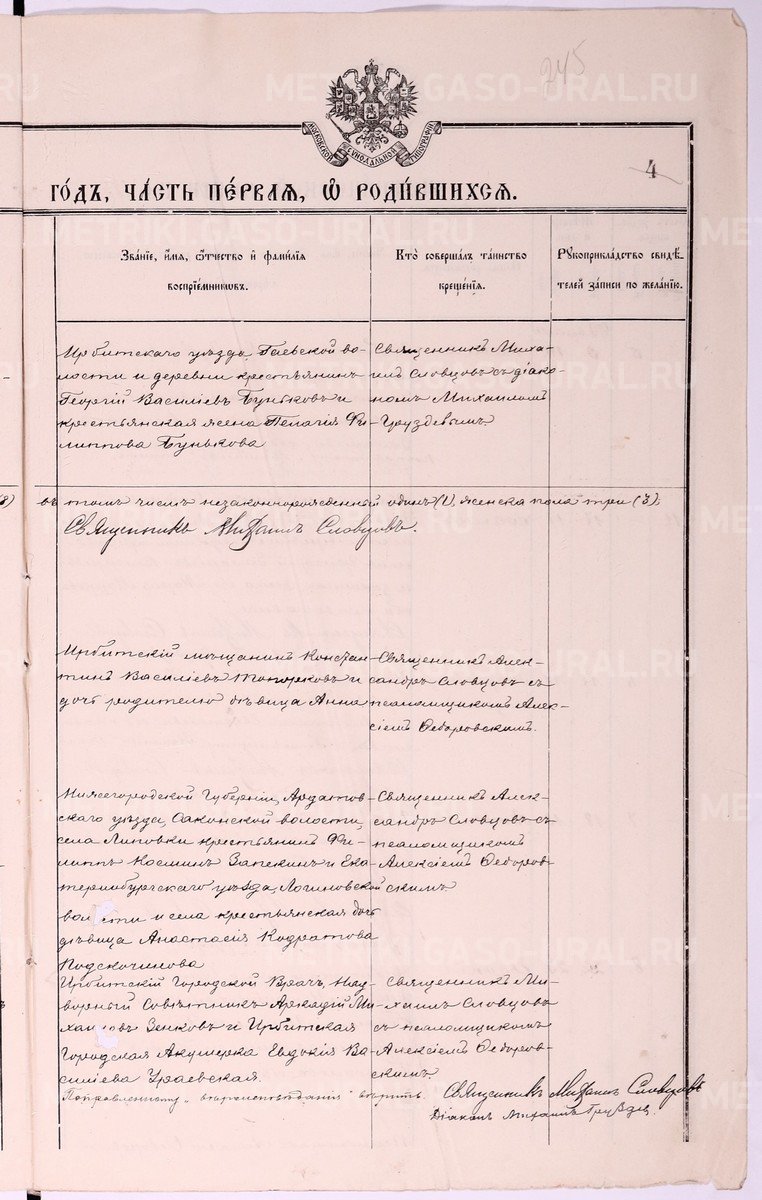 245
METRIKI.GASO-URAL.RU
МОСКОВСКОЙ СѴНОДАЛЬНОЙ ТИПОГРАФІИ
4
ГО́ДЪ, ЧА́СТЬ ПЕ́РВАЯ, Ѡ҆ РОДИ́ВШИХСЯ.
Зва́нїе, и҆́мя, ѻ҆́тчество и҆ фами́лїя
воспрїе́мниковъ.
Кто̀ соверша́лъ та́инство
креще́нїя.
Рꙋкоприкла́дство свидѣ́-
телей за́писи по жела́нїю.
Ирбитскаго уѣзда, Гаевской во-
лости и деревни крестьянинъ
Георгій Василіевъ Буньковъ и
крестьянская жена Пелагія Фи-
липпова Бунькова
Священникъ Миха-
илъ Словцовъ съ діако-
номъ Михаиломъ
Груздевымъ.
въ томъ числѣ незаконнорожденный одинъ (1), женска пола три (3);
Священникъ Михаилъ Словцовъ.
Ирбитскій мѣщанинъ Констан-
тинъ Василіевъ Топорковъ и
дочь родителю дѣвица Анна
Священникъ Алек-
сандръ Словцовъ съ
псаломщикомъ Алек-
сіемъ Ѳедоровскимъ.
Нижегородской Губерніи, Ардатов-
скаго уѣзда, Саконской волости,
села Липовки крестьянинъ Фи-
липпъ Косминъ Запекинъ и Ека-
теринбургскаго уѣзда, Логиновской
волости и села крестьянская дочь
дѣвица Анастасія Кодратова
Подскочинова
Священникъ Алек-
сандръ Словцовъ съ
псаломщикомъ
Алексіемъ Ѳедоров-
скимъ
Ирбитскій Городской Врачъ, Над-
ворный Совѣтникъ Аркадій Ми-
хаиловъ Зенковъ и Ирбитская
Городская Акушерка Евдокія Ва-
силіева Ураевская.
Священникъ Ми-
хаилъ Словцовъ
съ псаломщикомъ
Алексіемъ Ѳедоров-
скимъ.
Поправленному вѣрить.
Священникъ Михаилъ Словцовъ
Діаконъ Михаилъ Груздев